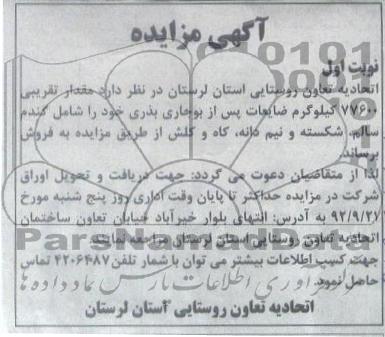 آگهی مزایده
نوبت اول
اتحادیه تعاون روستایی استان لرستان در نظر دارد مقدار تقریبی
۷۷۶۰۰ کیلوگرم ضایعات پس از بوجاری بذری خود را شامل گندم
سالم، شکسته و نیم دانه، کاه و کلش از طریق مزایده به فروش
برساند.
لذا از متقاضیان دعوت می گردد: جهت دریافت و تحویل اوراق
شرکت در مزایده حداکثر تا پایان وقت اداری روز پنج شنبه مورخ
۹۲/۹/۲۷ به آدرس: انتهای بلوار خیرآباد خیابان تعاون ساختمان
اتحادیه تعاون روستایی استان لرستان مراجعه نمایند.
جهت کسب اطلاعات بیشتر می توان با شمار تلفن ۴۲۰۶۴۸۷ تماس
حاصل نمود.
اتحادیه تعاون روستایی استان لرستان
ParsNamadData